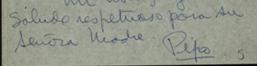 Saludo respetuoso para su
Señora Madre
Pepo.
5